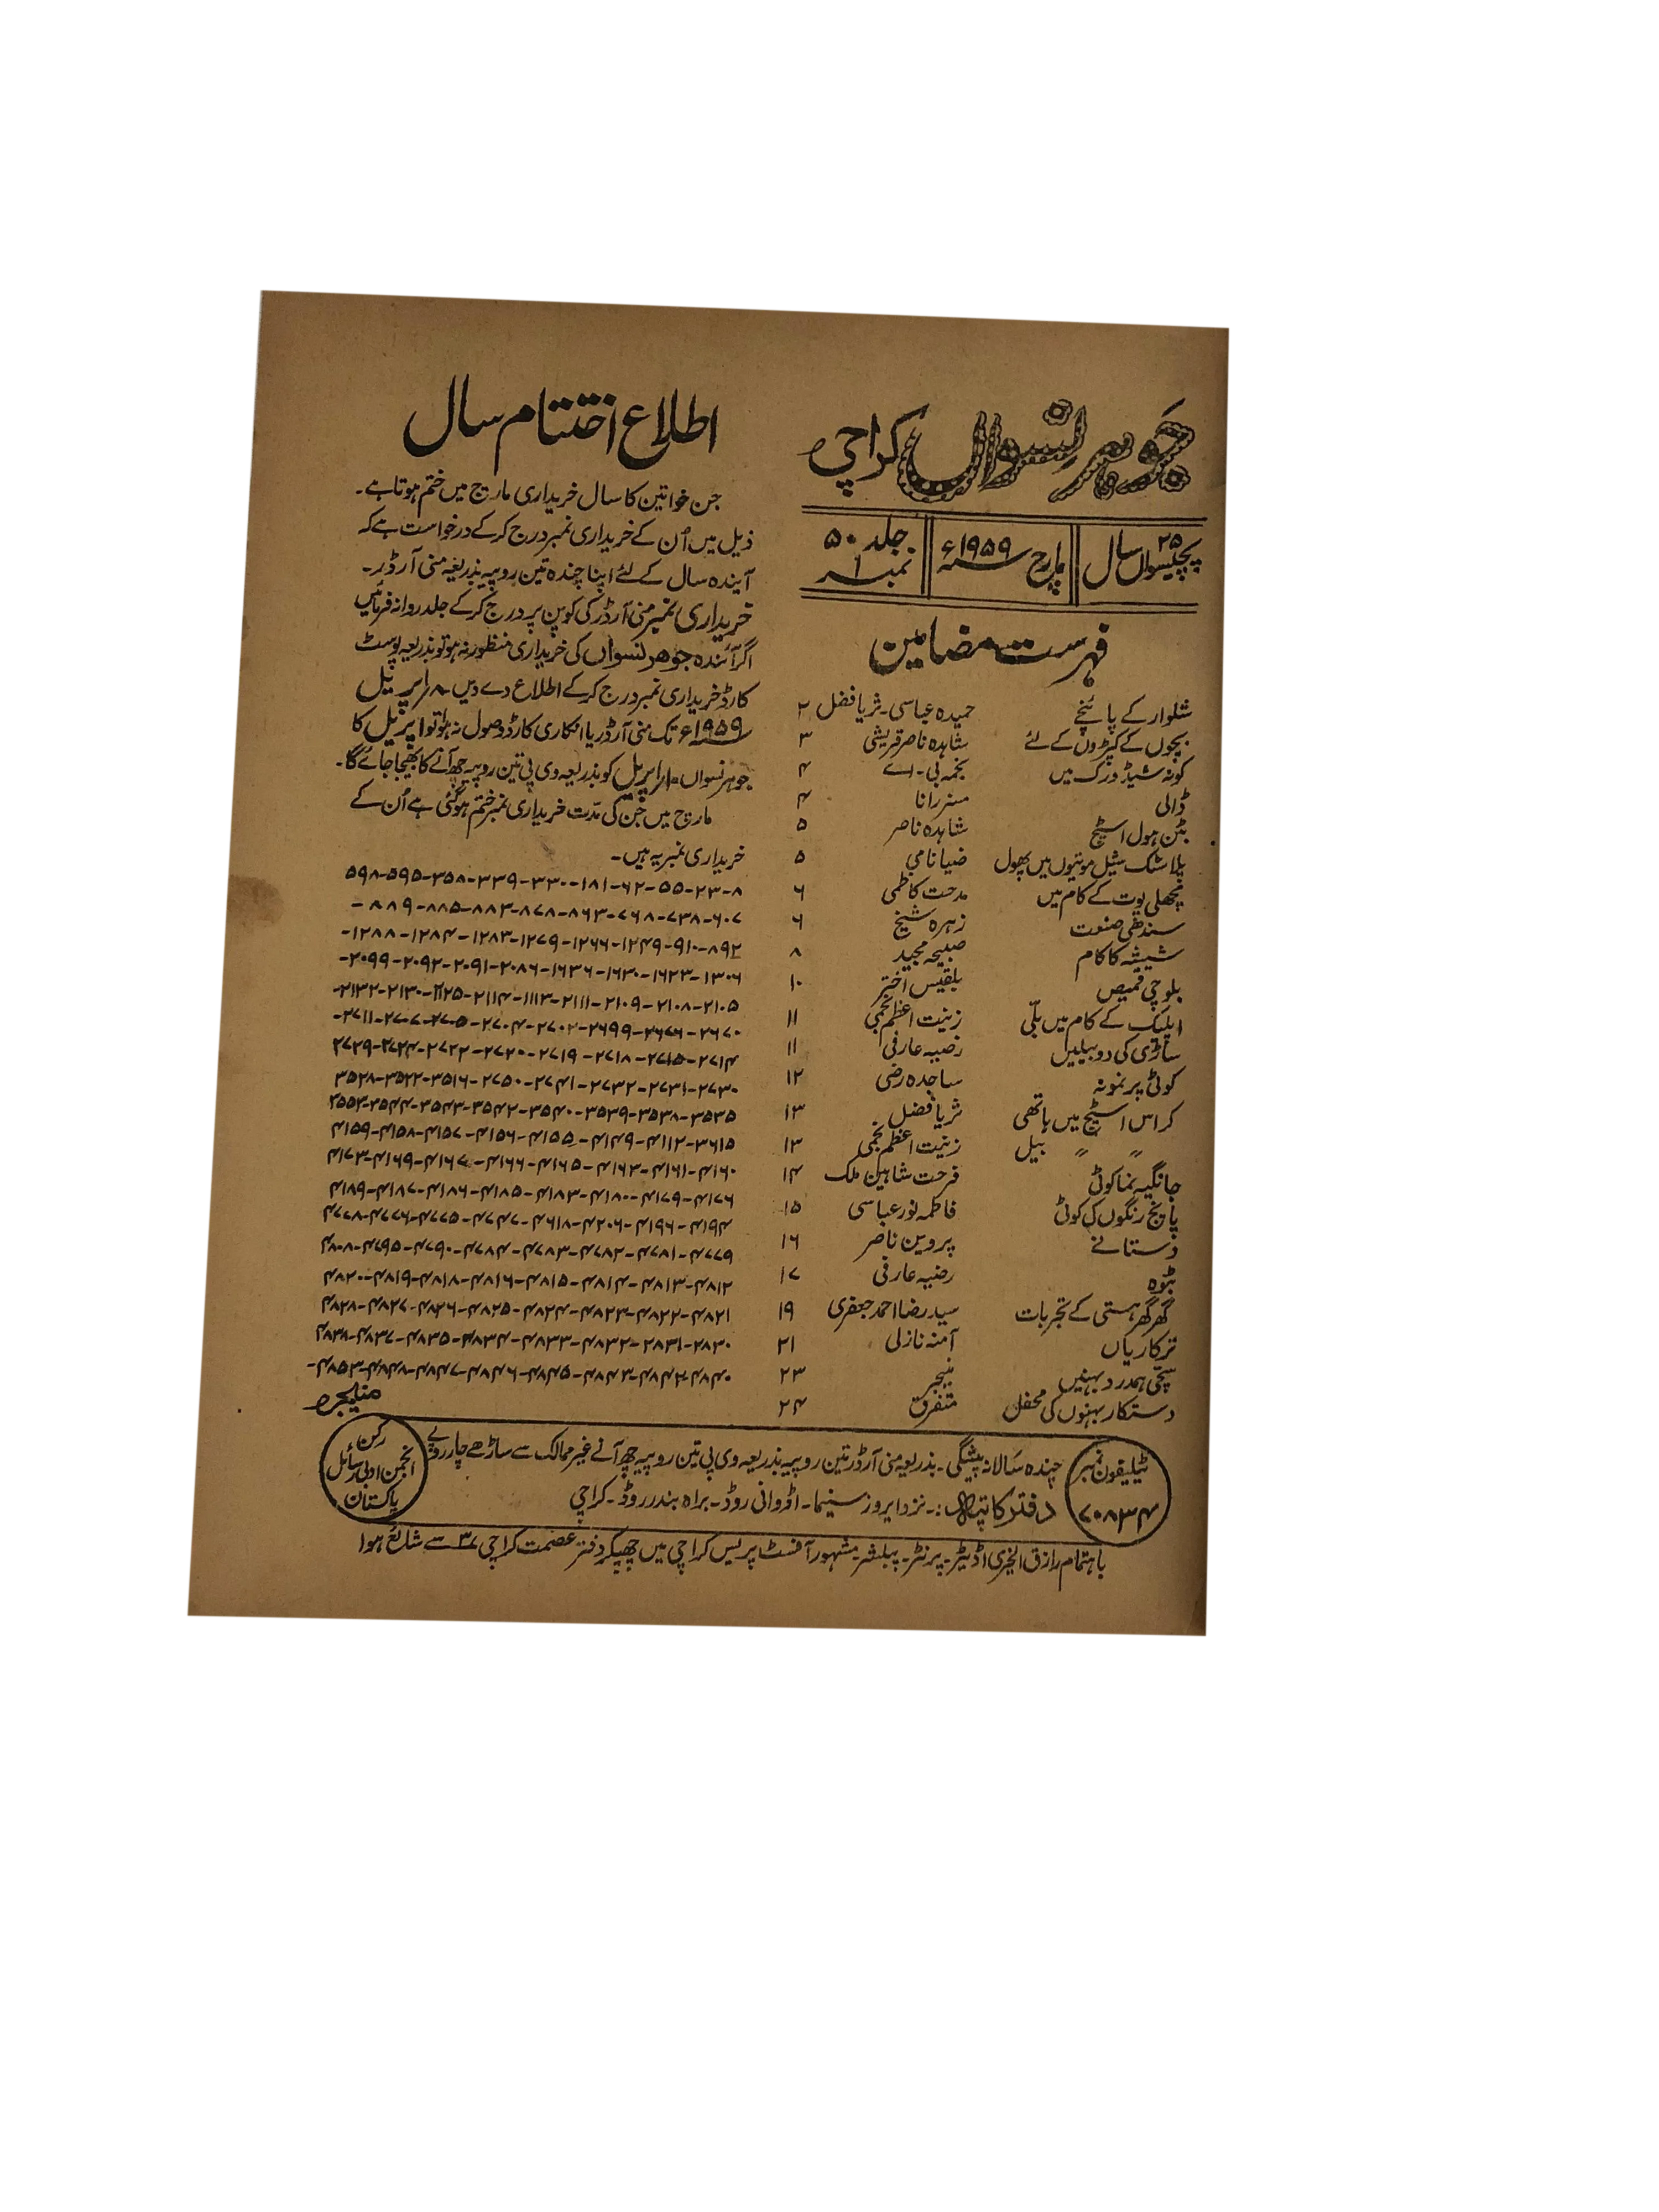 جوہر نسواں کراچی
۲۵ پچیسواں سال
مارچ سنہ ۱۹۵۹ء
جلد ۵۰
نمبر ۱
فہرست مضامین
شلوار کے پائنچے حمیدہ عباسی۔ ثریا فضل ۲
بچوں کے کپڑوں کے لئے شاہدہ ناصر قریشی ۳
کونہ شیڈ ورک میں نجمہ بی۔ اے ۴
ڈالی مسز رانا ۴
بٹن ہول اسٹیچ شاہدہ ناصر ۵
پلاسٹک شیل موتیوں میں پھول ضیا نامی ۵
مچھلی پوت کے کام میں مدحت کاظمی ۶
سندھی صنعت زہرہ شیخ ۶
شیشہ کا کام صبیحہ مجید ۸
بلوچی قمیص بلقیس اختر ۱۰
اپلیک کے کام میں بلّی زینت اعظم نجمی ۱۱
ساڑی کی دو بیلیں رضیہ عارفی ۱۱
کوٹی پر نمونہ ساجدہ رضی ۱۲
کراس اسٹیچ میں ہاتھی ثریا فضل ۱۳
〃 〃 بیل زینت اعظم نجمی ۱۳
جانگیہ نما کوٹی فرحت شاہین ملک ۱۴
پانچ رنگوں کی کوٹی فاطمہ نور عباسی ۱۵
دستانے پروین ناصر ۱۶
بٹوہ رضیہ عارفی ۱۷
گھر گھر ہستی کے تجربات سید رضا احمد جعفری ۱۹
ترکاریاں آمنہ نازلی ۲۱
سچی ہمدرد بہنیں منیجر ۲۳
دستکار بہنوں کی محفل متفرق ۲۴
اطلاع اختتام سال
جن خواتین کا سال خریداری مارچ میں ختم ہوتا ہے۔
ذیل میں اُن کے خریداری نمبر درج کر کے درخواست ہے کہ
آیندہ سال کے لئے اپنا چندہ تین روپیہ بذریعہ منی آرڈر۔
خریداری نمبر منی آرڈر کی کوپن پر درج کر کے جلد روانہ فرمائیں
اگر آئندہ جوہر نسواں کی خریداری منظور نہ ہو تو بذریعہ پوسٹ
کارڈ خریداری نمبر درج کر کے اطلاع دے دیں۔ ۸؍ اپریل
سنہ ۱۹۵۹ء تک منی آرڈر یا انکاری کارڈ وصول نہ ہوا تو اپریل کا
جوہر نسواں ۱۰؍ اپریل کو بذریعہ وی پی تین روپیہ چھ آنے کا بھیجا جائے گا۔
مارچ میں جن کی مدت خریداری نمبر ختم ہو گئی ہے اُن کے
خریداری نمبر یہ ہیں۔
۸-۲۳-۵۵-۶۲-۱۸۱-۳۳۰-۳۳۹-۳۵۸-۵۹۵-۵۹۸
۶۰۷-۷۳۸-۷۶۸-۸۶۳-۸۷۸-۸۸۳-۸۸۵-۸۸۹-
۸۹۲-۹۱۰-۱۲۴۹-۱۲۶۶-۱۲۷۹-۱۲۸۳-۱۲۸۴-۱۲۸۸-
۱۳۰۶-۱۶۲۳-۱۶۳۰-۱۶۳۶-۲۰۸۶-۲۰۹۱-۲۰۹۲-۲۰۹۹-
۲۱۰۵-۲۱۰۸-۲۱۰۹-۲۱۱۱-۱۱۱۳-۲۱۱۴-۲۱۲۵-۲۱۳۰-۲۱۳۲-
۲۶۷۰-۲۶۷۶-۲۶۹۹-۲۷۰۲-۲۷۰۴-۲۷۰۵-۲۷۰۷-۲۷۱۱-
۲۷۱۴-۲۷۱۵-۲۷۱۸-۲۷۱۹-۲۷۲۰-۲۷۲۲-۲۷۲۴-۲۷۲۹
۲۷۳۰-۲۷۳۱-۲۷۳۲-۲۷۴۱-۲۷۵۰-۳۵۱۶-۳۵۲۲-۳۵۲۸
۳۵۳۵-۳۵۳۸-۳۵۳۹-۳۵۴۰-۳۵۴۲-۳۵۴۳-۳۵۴۴-۳۵۵۲
۳۶۱۵-۴۱۱۲-۴۱۴۹-۴۱۵۵-۴۱۵۶-۴۱۵۷-۴۱۵۸-۴۱۵۹
۴۱۶۰-۴۱۶۱-۴۱۶۳-۴۱۶۵-۴۱۶۶-۴۱۶۷-۴۱۶۹-۴۱۷۳
۴۱۷۶-۴۱۷۹-۴۱۸۰-۴۱۸۳-۴۱۸۵-۴۱۸۶-۴۱۸۷-۴۱۸۹
۴۱۹۴-۴۱۹۶-۴۲۰۶-۴۶۱۸-۴۷۴۷-۴۷۷۵-۴۷۷۶-۴۷۷۸
۴۷۷۹-۴۷۸۱-۴۷۸۲-۴۷۸۳-۴۷۸۴-۴۷۹۰-۴۷۹۵-۴۸۰۸
۴۸۱۲-۴۸۱۳-۴۸۱۴-۴۸۱۵-۴۸۱۶-۴۸۱۸-۴۸۱۹-۴۸۲۰
۴۸۲۱-۴۸۲۲-۴۸۲۳-۴۸۲۴-۴۸۲۵-۴۸۲۶-۴۸۲۷-۴۸۲۸
۲۸۳۰-۲۸۳۱-۴۸۳۲-۴۸۳۳-۴۸۳۴-۴۸۳۵-۴۸۳۷-۴۸۳۸
۴۸۴۰-۴۸۴۲-۴۸۴۳-۴۸۴۵-۴۸۴۶-۴۸۴۷-۴۸۴۸-۴۸۵۳-
منیجر
ٹیلیفون نمبر
۷۰۸۳۴
چندہ سالانہ پیشگی۔ بذریعہ منی آرڈر تین روپیہ بذریعہ وی پی تین روپیہ چھ آنے غیر ممالک سے ساڑھے چار روپے
دفتر کا پتہ:۔ نزد ایروز سنیما۔ اڈوانی روڈ۔ براہ بندر روڈ۔ کراچی
رکن
انجمن ادبی رسائل
پاکستان
باہتمام رازق الخیری اڈیٹر۔ پرنٹر۔ پبلشر مشہور آفسٹ پریس کراچی میں چھپکر دفتر عصمت کراچی ۳۷ سے شائع ہوا